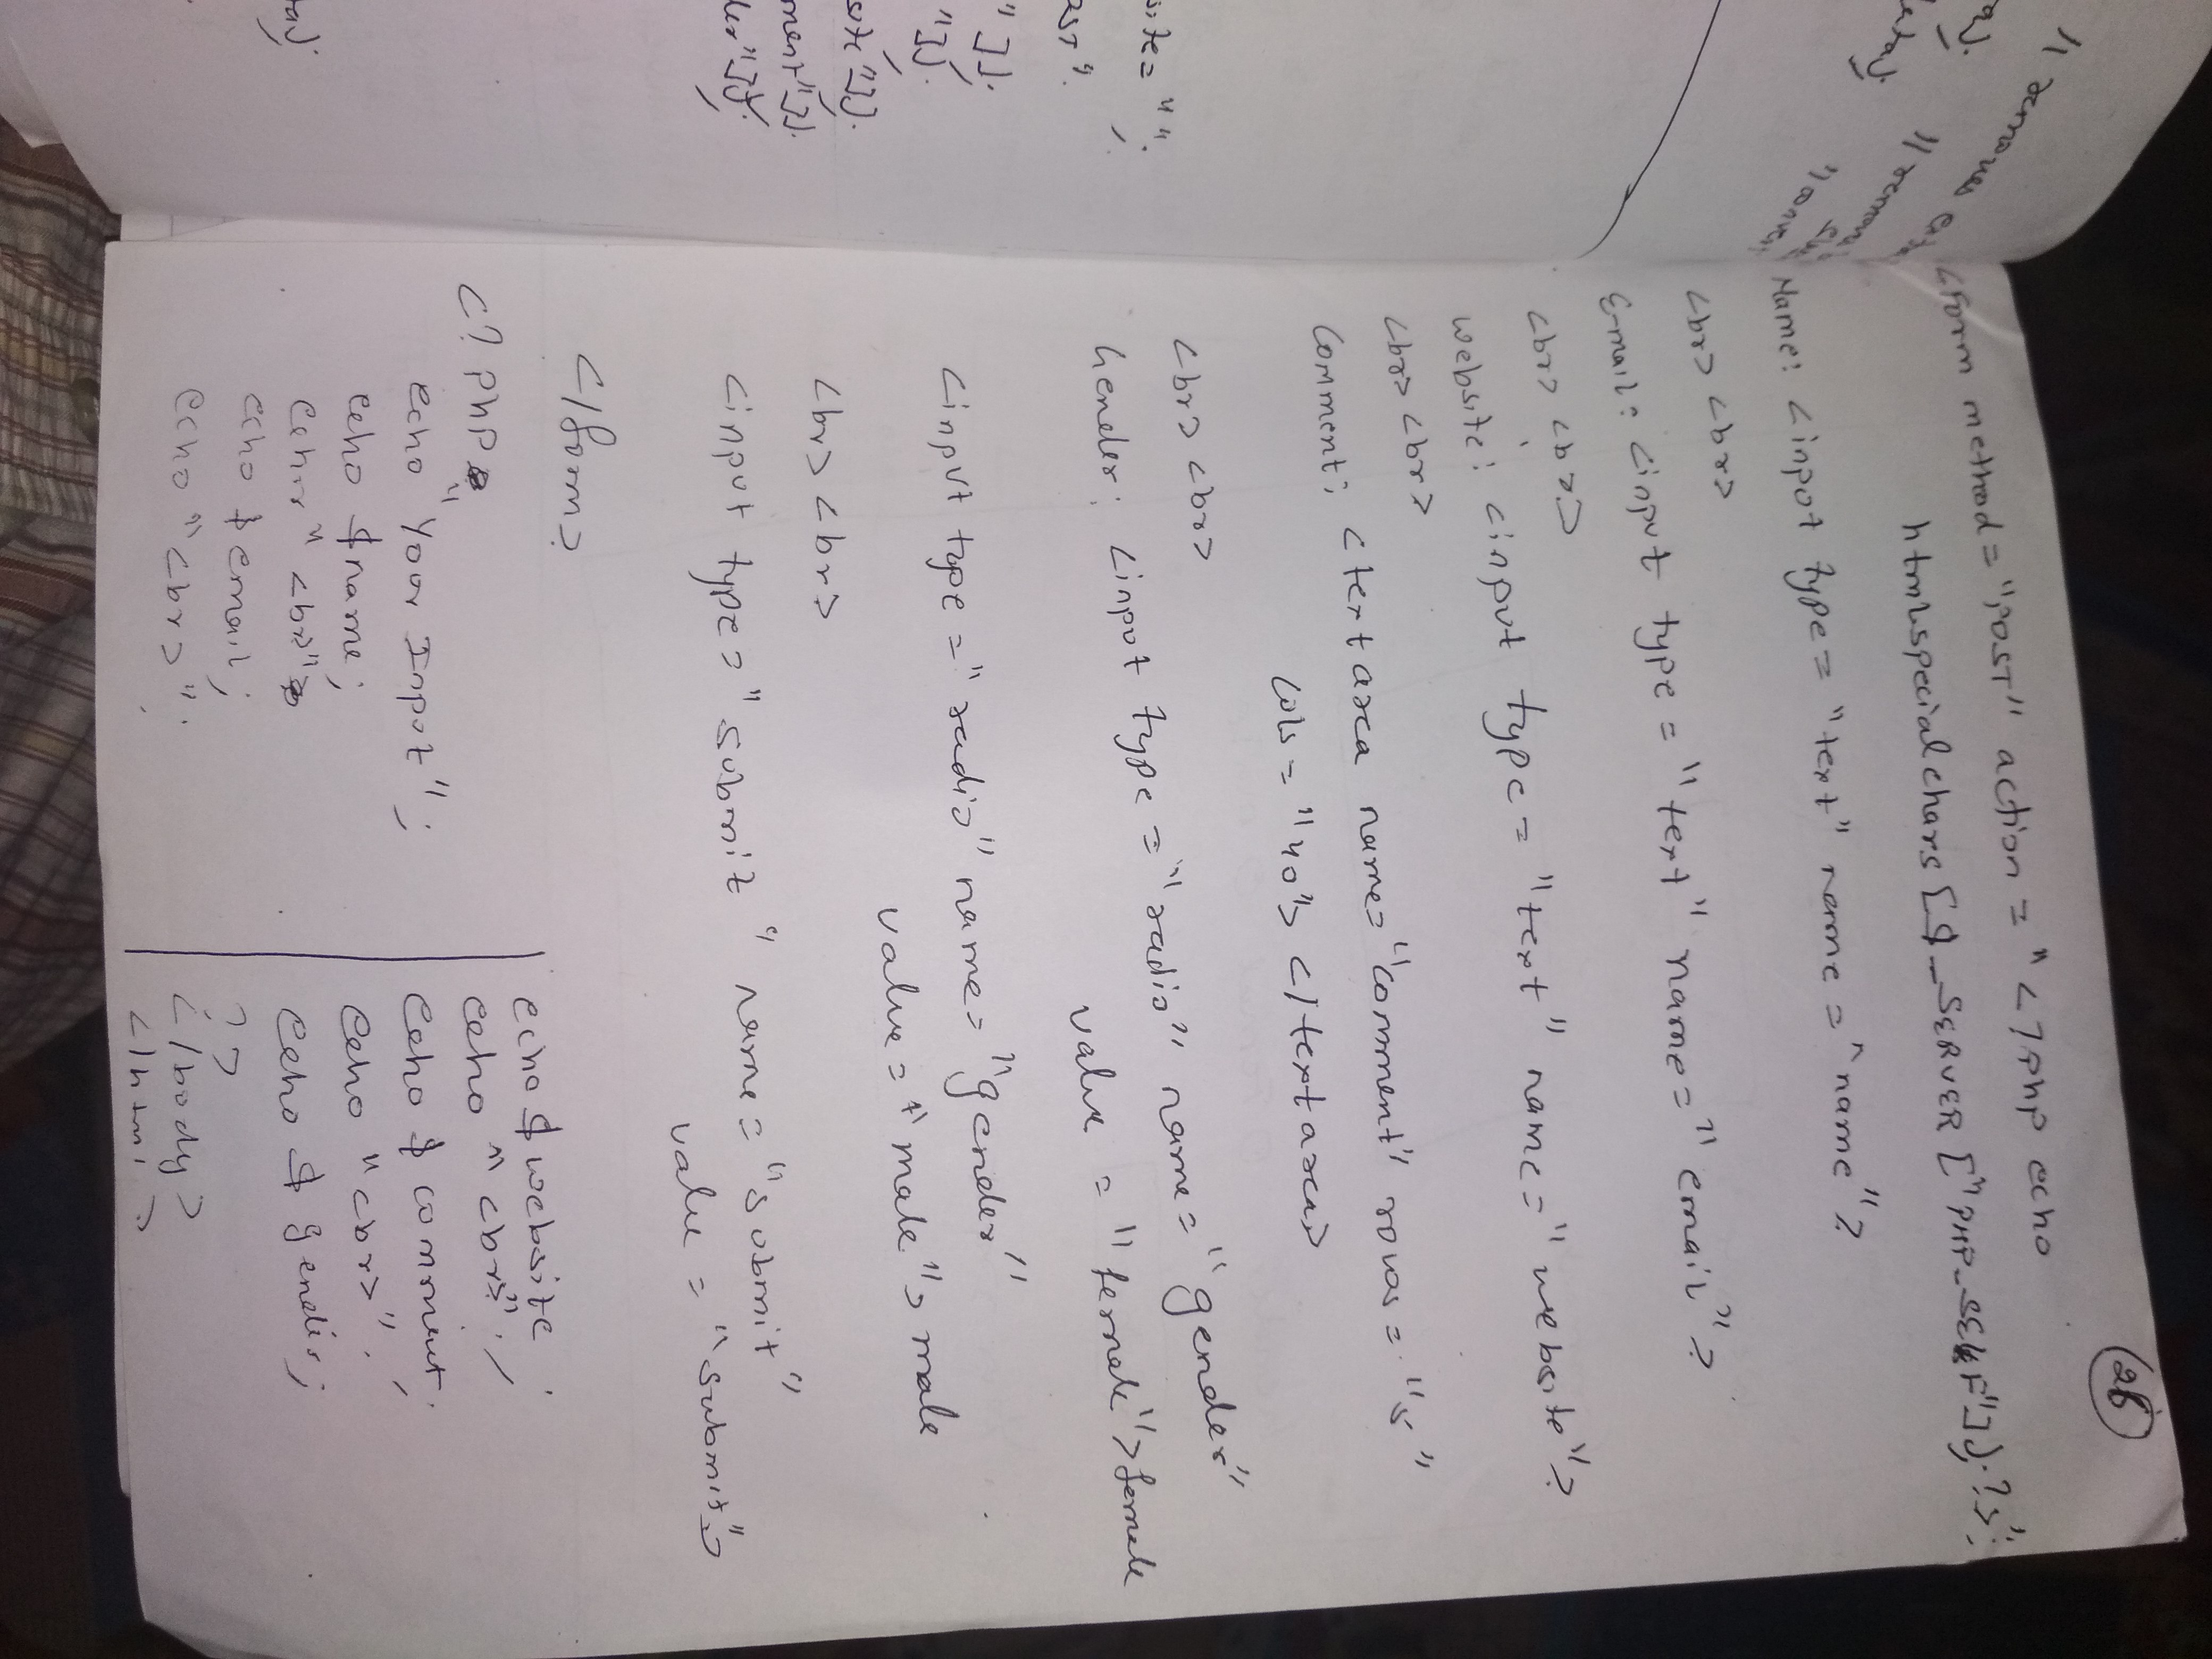 26
<form method="POST" action = "<?php echo
htmlspecialchars [$_SERVER ["PHP_SELF"]); ?>";
Name: <input type = "text" name = "name">
<br> <br>
E-mail: <input type = "text" name = "email">
<br> <br>
website: <input type = "text" name = "website">
<br> <br>
Comment: <textarea name="comment" rows = "5"
cols = "40"> </textarea>
<br> <br>
Gender: <input type = "radio" name = "gender"
value = "female">female
<input type = "radio" name = "gender"
value = "male"> male
<br> <br>
<input type = "submit" name = "submit"
value = "submit">
</form>
<? php
echo "Your Input";
echo $name;
echo "<br>"
echo $email;
echo "<br>";
echo $website;
echo "<br>";
echo $comment;
echo "<br>";
echo $gender;
?>
</body>
</html>
// removes extra
// removes
// conver
site= "";
OST".
"]);
"]);
site"]);
ment"]);
der"]);
ta);